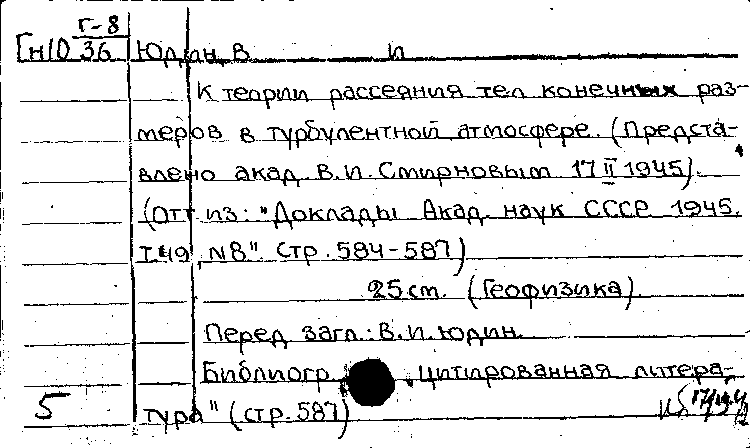 Г-8
Гн10 36 Юдин, В И
К теории рассеяния тел конечных раз-
меров в турбулентной атмосфере. (Предста-
влено акад. В.И. Смирновым 17 II 1945).
(Отт из: "Доклады Акад. наук СССР 1945.
Т.49, N8" стр. 584-587)
25 cm. (Геофизика).
Перед загл.: В.И. Юдин.
Библиогр. „Цитированная литера-
5 тура" (стр. 587)